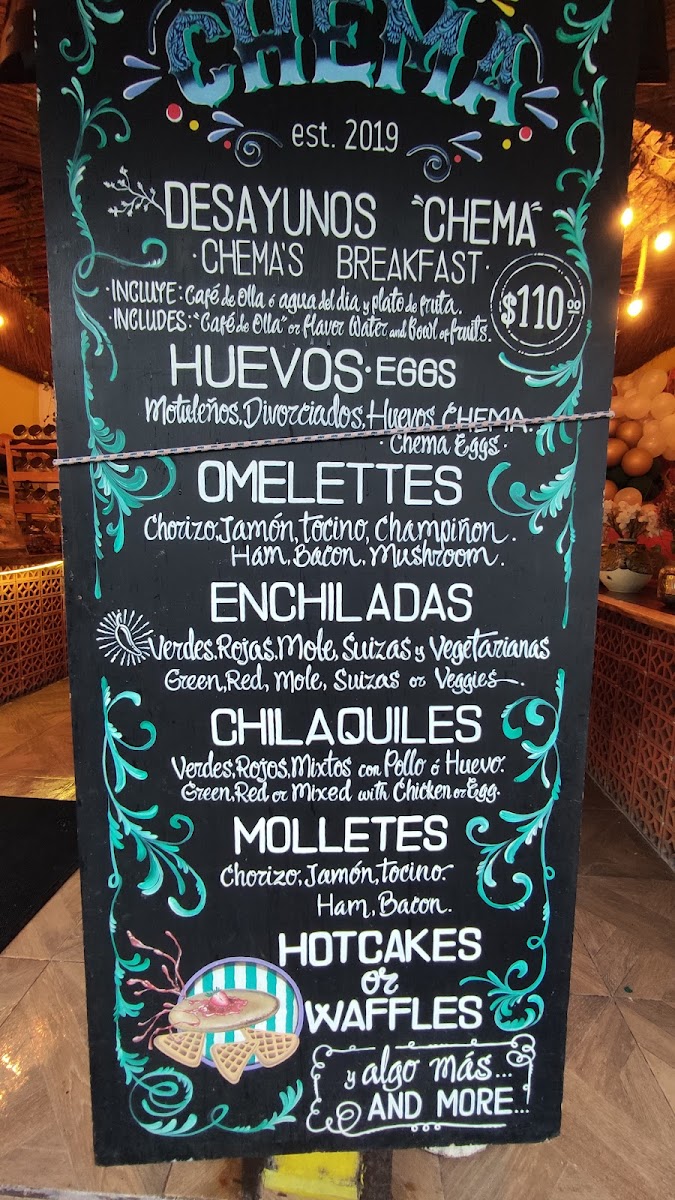 CHEMA
est. 2019
DESAYUNOS "CHEMA"
·CHEMA'S BREAKFAST·
·INCLUYE: Café de Olla ó agua del dia y plato de fruta.
·INCLUDES: "Café de Olla" or Flavor Water and Bowl of fruits.
$110.00
HUEVOS·EGGS
Motuleños, Divorciados, Huevos CHEMA.
·Chema Eggs·
OMELETTES
Chorizo, Jamón, tocino, Champiñon.
Ham, Bacon, Mushroom.
ENCHILADAS
Verdes, Rojas, Mole, Suizas y Vegetarianas
Green, Red, Mole, Suizas or Veggies.
CHILAQUILES
Verdes, Rojos, Mixtos con Pollo ó Huevo.
Green, Red or Mixed with Chicken or Egg.
MOLLETES
Chorizo, Jamón, tocino.
Ham, Bacon.
HOTCAKES
or
WAFFLES
y algo más...
AND MORE...